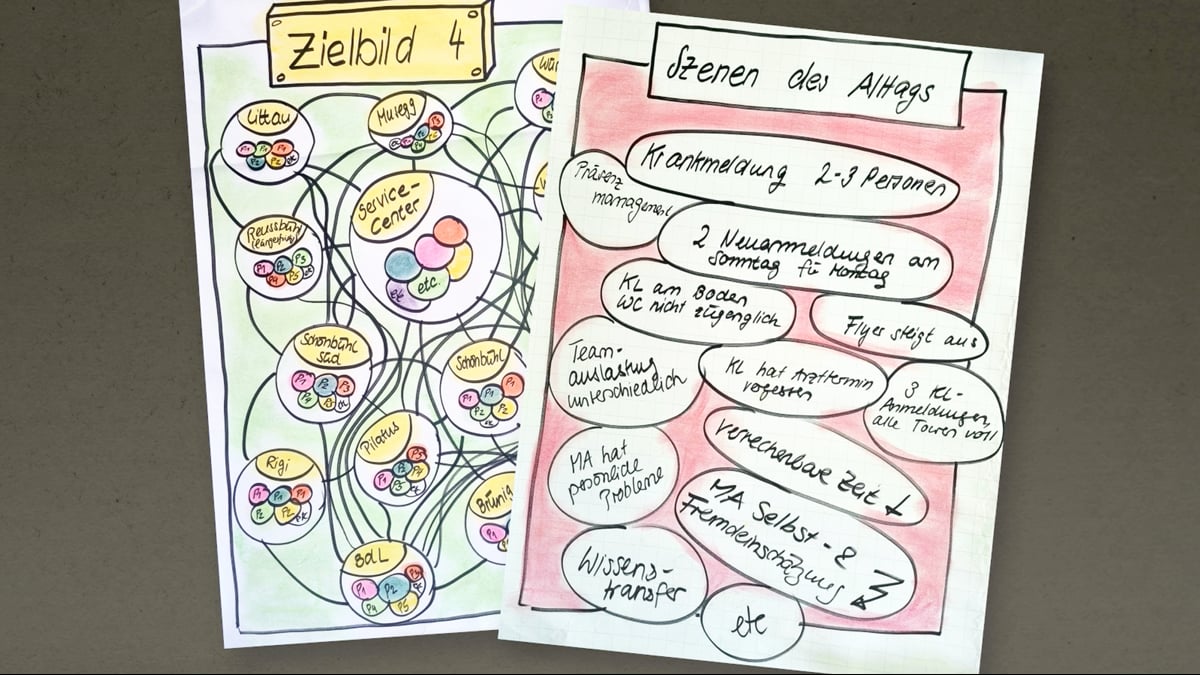 Zielbild 4
Littau
P1 P1 P1
P2 P2 EK
Musegg
Reussbühl
P1 P2 P3
P4 P5 EK
Service-
Center
etc.
EK
Schönbühl
Süd
P1 P2 P3
Schönbühl
P1 P1 P1
P2 P2
Pilatus
P1 P2
P3 EK
Rigi
P1 P1 P1
P2 P2 EK
Brünig
P1
BdL
P1 P2
P4 P5
Szenen des Alltags
Krankmeldung 2-3 Personen
Präsenz
management
2 Neuanmeldungen am
Sonntag für Montag
KL am Boden
WC nicht zugänglich
Flyer steigt aus
Team-
auslastung
unterschiedlich
KL hat Arzttermin
vergessen
3 KL-
Anmeldungen,
alle Touren voll
verrechenbare Zeit ↓
MA hat
persönliche
Probleme
MA Selbst- &
Fremdeinschätzung
Wissens-
transfer
etc